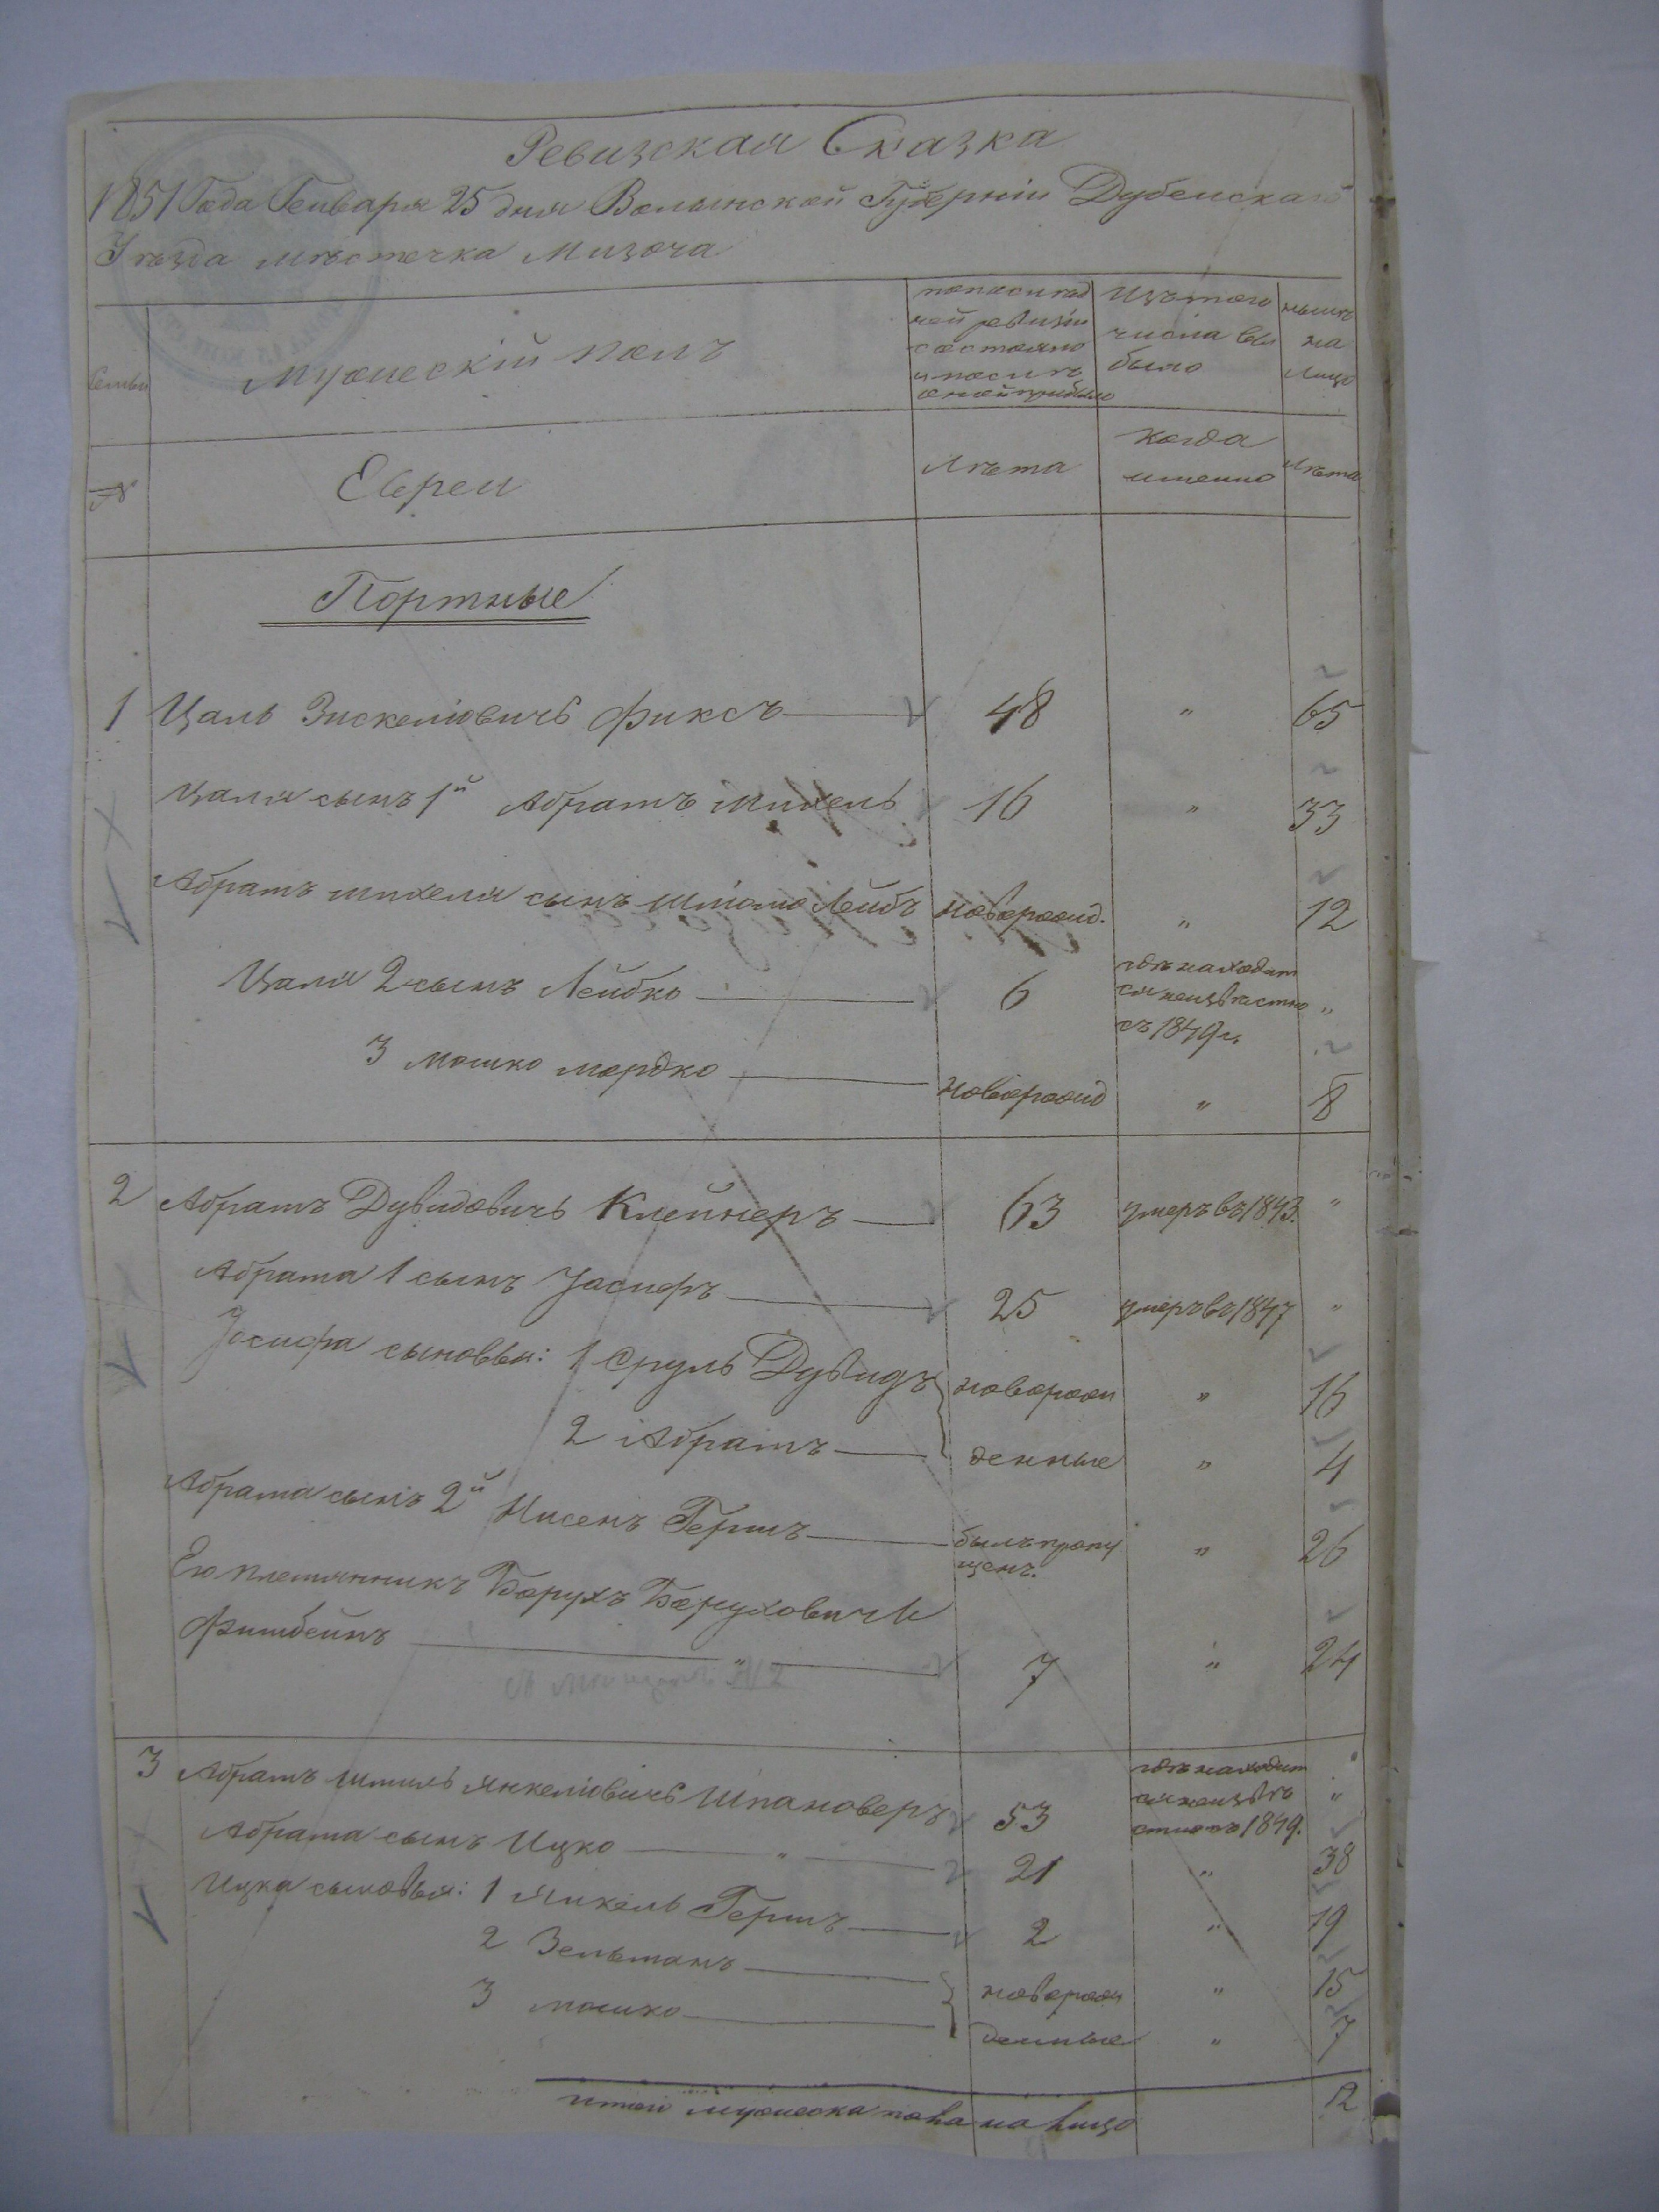 Ревизская Сказка
1851 Года Генваря 25 дня Волынской Губерніи Дубенскаго
Уѣзда мѣстечка Мизоча
Семьи
Мужескій полъ
по послѣд
ней ревизіи
состояло
и послѣ
оной прибыло
Изъ того
числа вы
было
нынѣ
на
лицо
№
Евреи
Лѣта
когда
именно
Лѣта
Портные
1 Цаль Зискелювичъ Фиксъ 48 " 65
Цаля сынъ 1й Абрамъ Михель 16 " 33
Абрамъ Михеля сынъ Шліома Лейбъ новорожд. " 12
Цаля 2 сынъ Лейбко 6 гдѣ находит
ся неизвѣстно "
съ 1849 г.
3 Мошко Мордко новорожд " 8
2 Абрамъ Дувидовичъ Клейнеръ 63 умеръ въ 1843. "
Абрама 1 сынъ Іосифъ 25 умеръ въ 1847 "
Іосифа сыновья: 1 Сруль Дувидъ новорож " 16
2 Абрамъ денные " 4
Абрама сынъ 2й Нисенъ Гершъ былъ пропу
щенъ. " 26
Его племянникъ Борухъ Боруховичъ
Фишбейнъ " 7 " 24
№ 2
3 Абрамъ Шмиль Янкелювичъ Шпановеръ 53 гдѣ находит "
ся неизвѣ "
стно съ 1849.
Абрама сынъ Ицко " 21 " 38
Ицка сыновья: 1 Янкель Гершъ 2 " 19
2 Зельманъ новорож " 15
3 Мошко денные " 7
итого мужеска пола на лицо 12